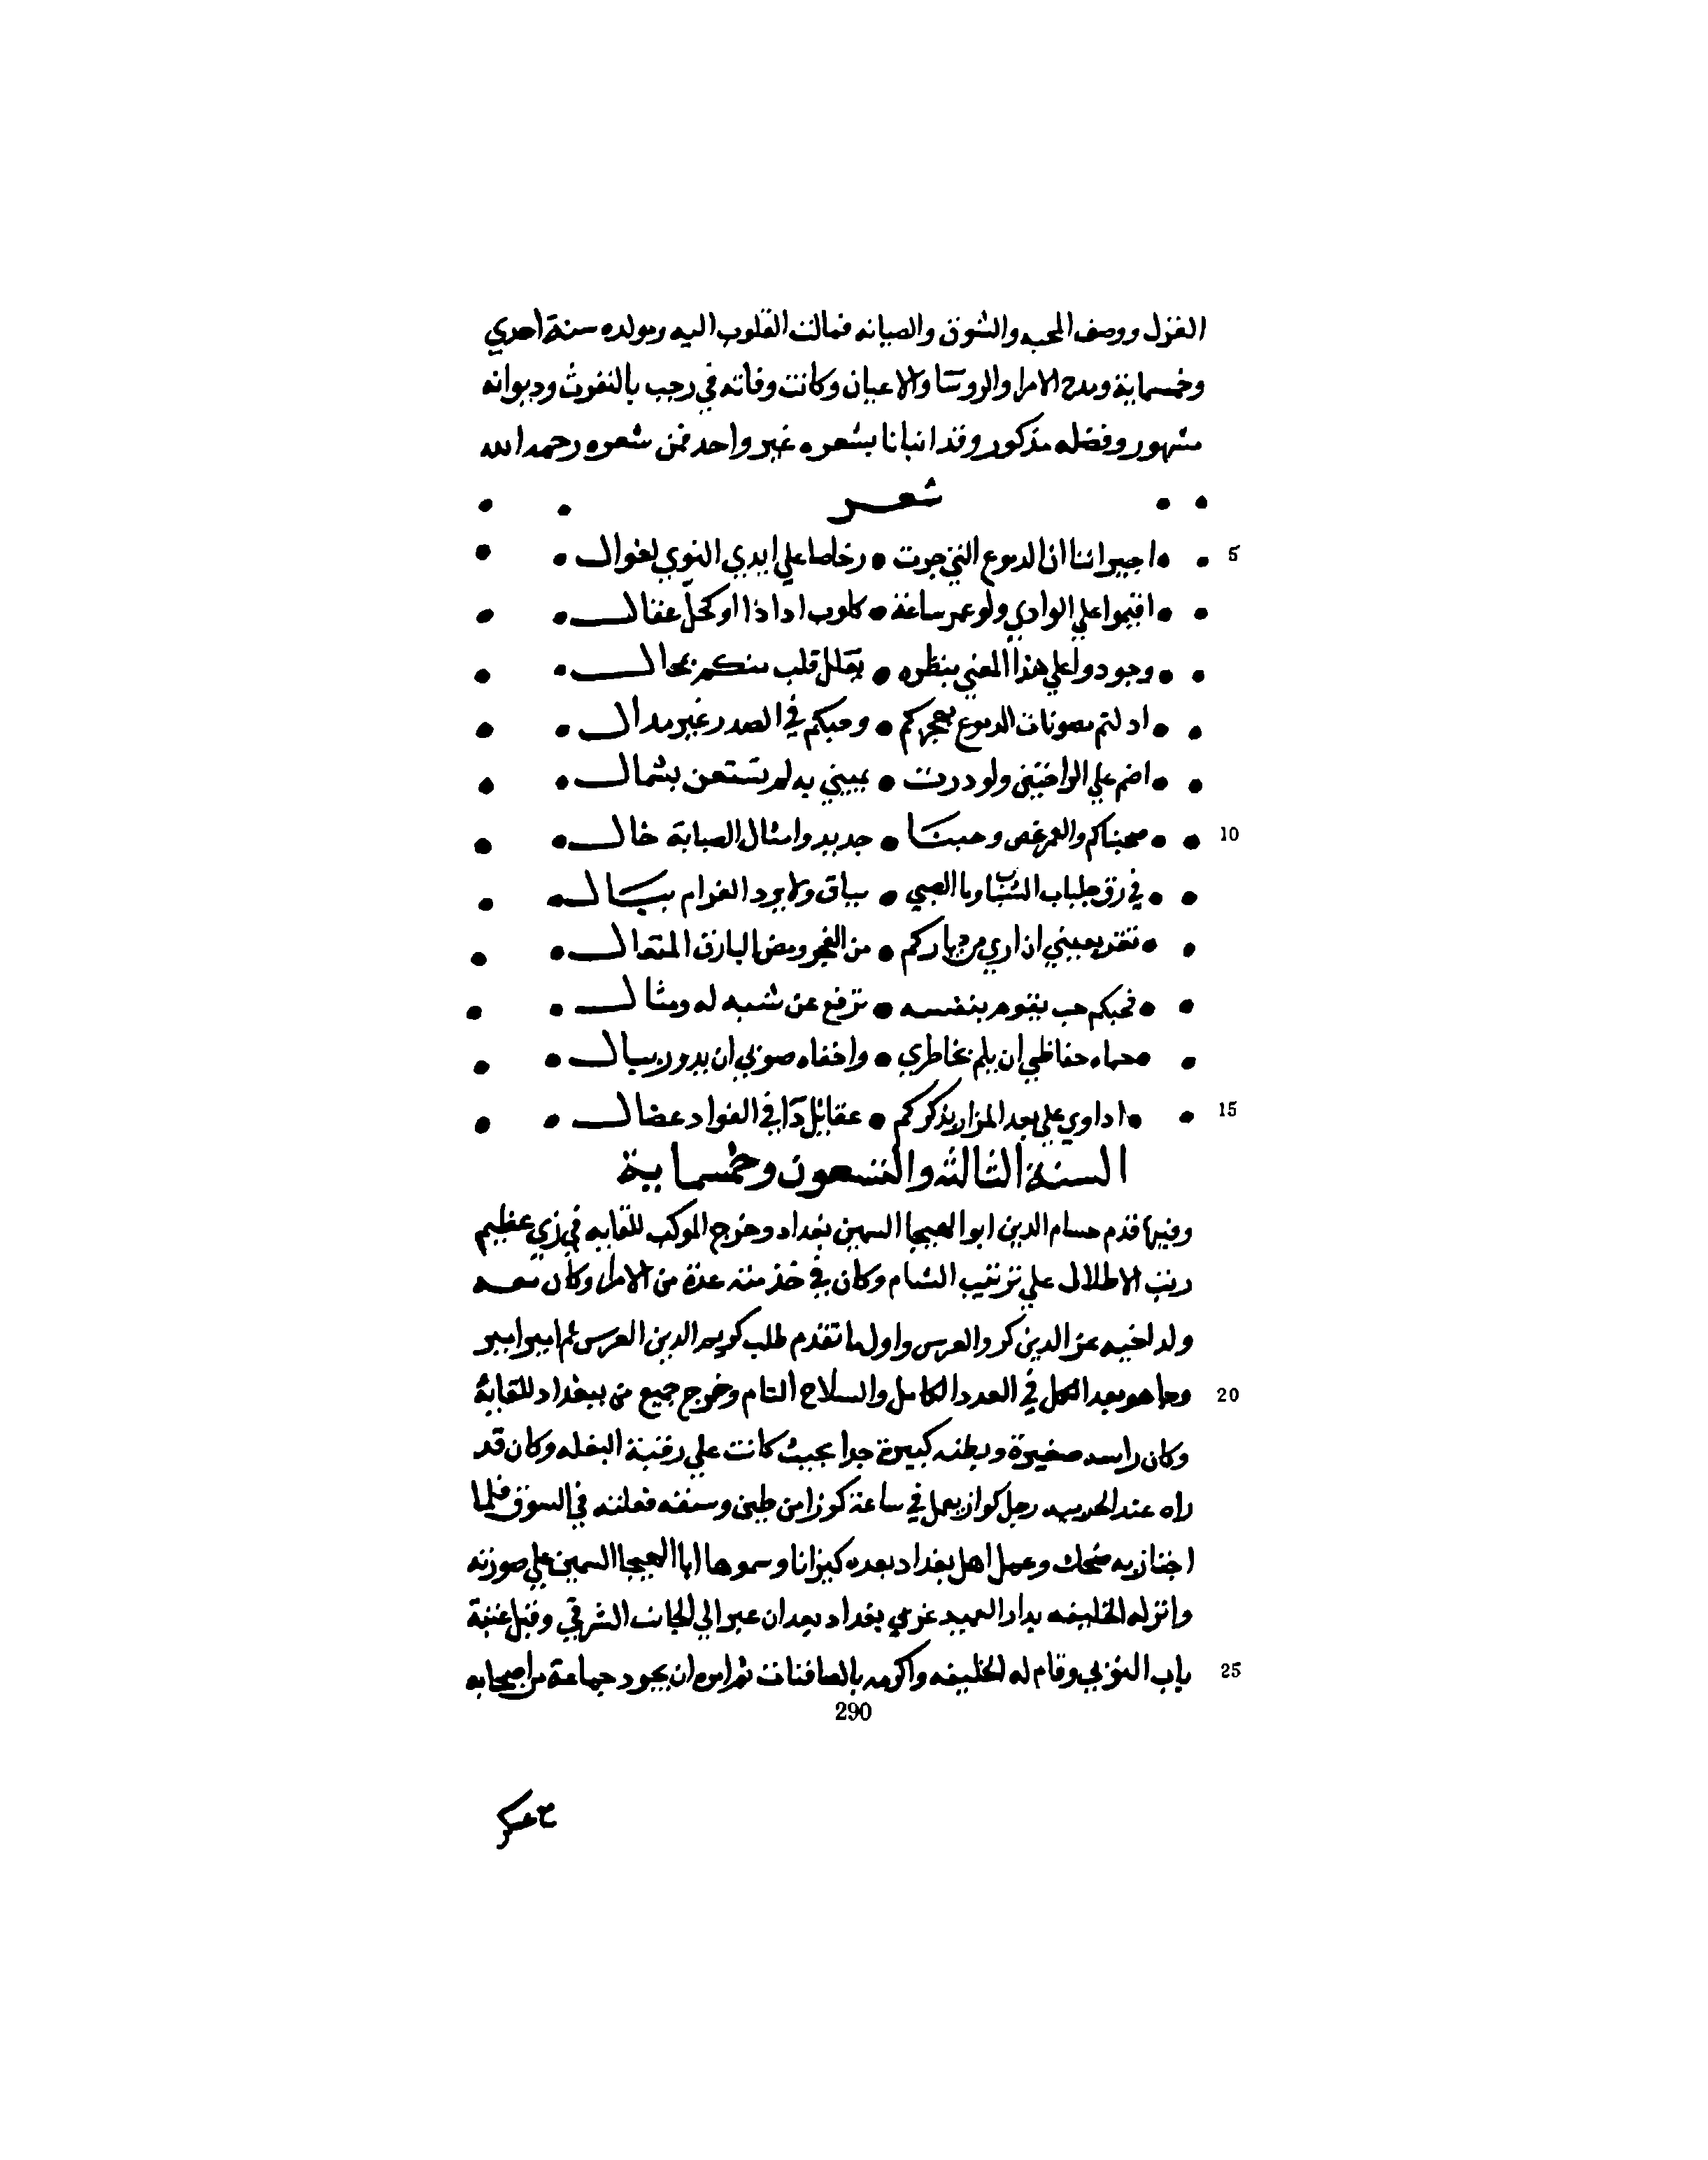 الغزل ووصف المحبه والشوق والصبابه فمالت القلوب اليه ومولده سنة احدي
وخمسماية ومدح الامرا والروسا والاعيان وكانت وفاته في رجب بالنفوث وديوانه
مشهور وفضله مذكور وقد انبانا بشعره غير واحد فمن شعره رحمه الله
شعر
5 اجيراننا ان الدموع التي جرت • رخاصا علي ايدي النوي لغوال
اقيموا علي الوادي ولو عمر ساعة • كلوب اداذا او كحل عقال
وجودوا علي هذا المعني بنظره • تعلل قلب منكم بمحال
اذ لتم مصونات الدموع بهجركم • وحبكم في الصدر غير مدال
اضم علي الواحتين ولو درت • يميني به لم تستعن بشمال
10 صحبناكم والعمر غض وحبنا • جديد وامثال الصبابة خال
في رق جلباب الشباب وما الصبي • بباق ولا برد الغرام ببال
تقر بعيني ان اري من دياركم • من الفجر ومض البارق المتعال
فحبكم حب يقوم بنفسه • ترفع عن شبه له ومثال
حماه حفاظي ان يلم بخاطري • واخفاه صوني ان يدور ببال
15 اداوي علي بعد المزار بذكركم • عقابل دآ في الفواد عضال
السنة الثالثه والتسعون وخمسماية
وفيها قدم حسام الدين ابو الهيجا السمين بغداد وخرج الموكب للقايه في زي عظيم
رتب الاطلال علي ترتيب الشام وكان في خدمته عدة من الامرا وكان معه
ولد اخيه عز الدين كر والغرس واول ما تقدم طلب كريم الدين الغرس ثم امير امير
20 وجا هو بعد الكل في العدد الكامل والسلاح التام وخرج جميع من ببغداد للقايه
وكان راسه صغيرة وبطنه كبيرة جدا بحيث كانت علي رقبة البغله وكان قد
راه عند الحربيه رجل كواز يعمل في ساعة كوزا من طين وسبقه فعلقه في السوق فلما
اجتاز به ضحك وعمل اهل بغداد بعده كيزانا وسموها ابا الهيجا السمين علي صورته
وانزله الخليفه بدار العميد غربي بغداد بعد ان عبر الي الجانب الشرقي وقبل عتبة
25 باب النوبي وقام له الخليفه واكرمه بالصافنات ثم امره ان يجرد جماعة من اصحابه
290